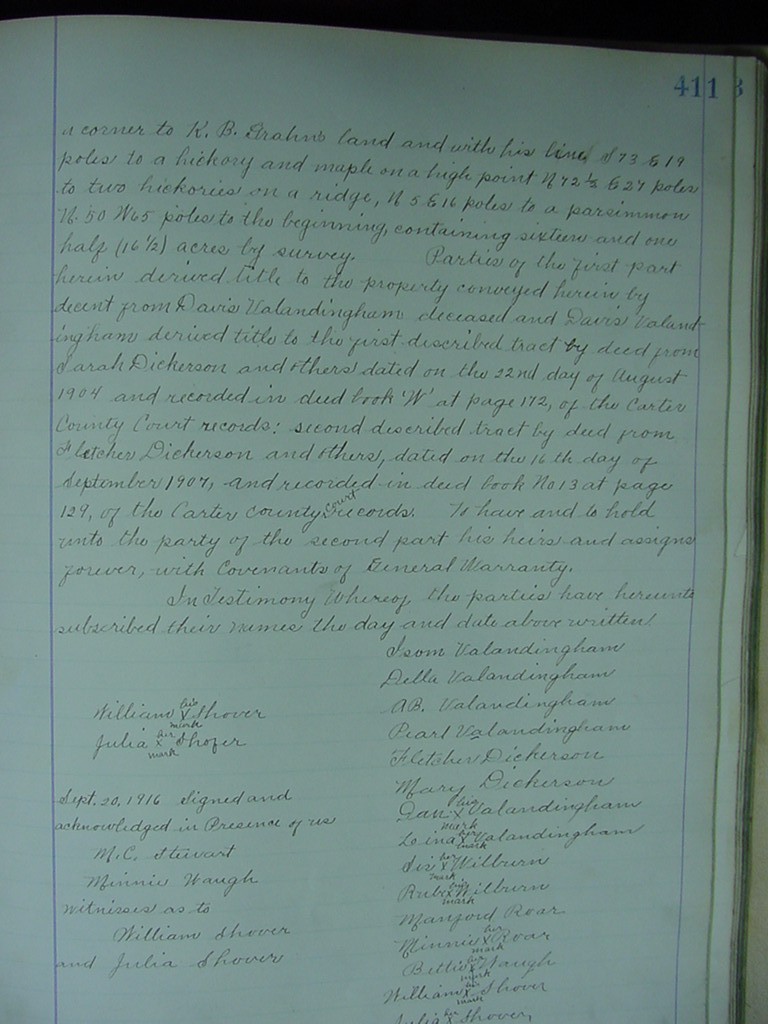 411
a corner to K. B. Grahns land and with his line S 73 E 19
poles to a hickory and maple on a high point N 72 1/2 E 27 poles
to two hickories on a ridge, N 5 E 16 poles to a parsimmon
N. 50 W 65 poles to the beginning, containing sixteen and one
half (16 1/2) acres by survey. Parties of the first part
herein derived title to the property conveyed herein by
decent from Davis Valandingham deceased and Davis Valand-
ingham derived title to the first described tract by deed from
Sarah Dickerson and others dated on the 22nd day of August
1904 and recorded in deed book 'W' at page 172, of the Carter
County Court records: second described tract by deed from
Fletcher Dickerson and others, dated on the 16th day of
September 1907, and recorded in deed book No 13 at page
129, of the Carter County Court records. To have and to hold
unto the party of the second part his heirs and assigns
forever, with Covenants of General Warranty.
In Testimony Whereof, the parties have hereunto
subscribed their names the day and date above written.
Isom Valandingham
Della Valandingham
AB. Valandingham
Pearl Valandingham
Fletcher Dickerson
Mary Dickerson
Dan his X mark Valandingham
Leina her X mark Valandingham
Sis her X mark Wilburn
Rube his X mark Wilburn
Manford Roar
Minnie her X mark Roar
Bettie her X mark Waugh
William his X mark Shover
Julia her X Shover,
William his X mark Shover
Julia her X mark Shofer
Sept. 20, 1916 Signed and
acknowledged in Presence of us
M.C. Stewart
Minnie Waugh
Witnesses as to
William Shover
and Julia Shover